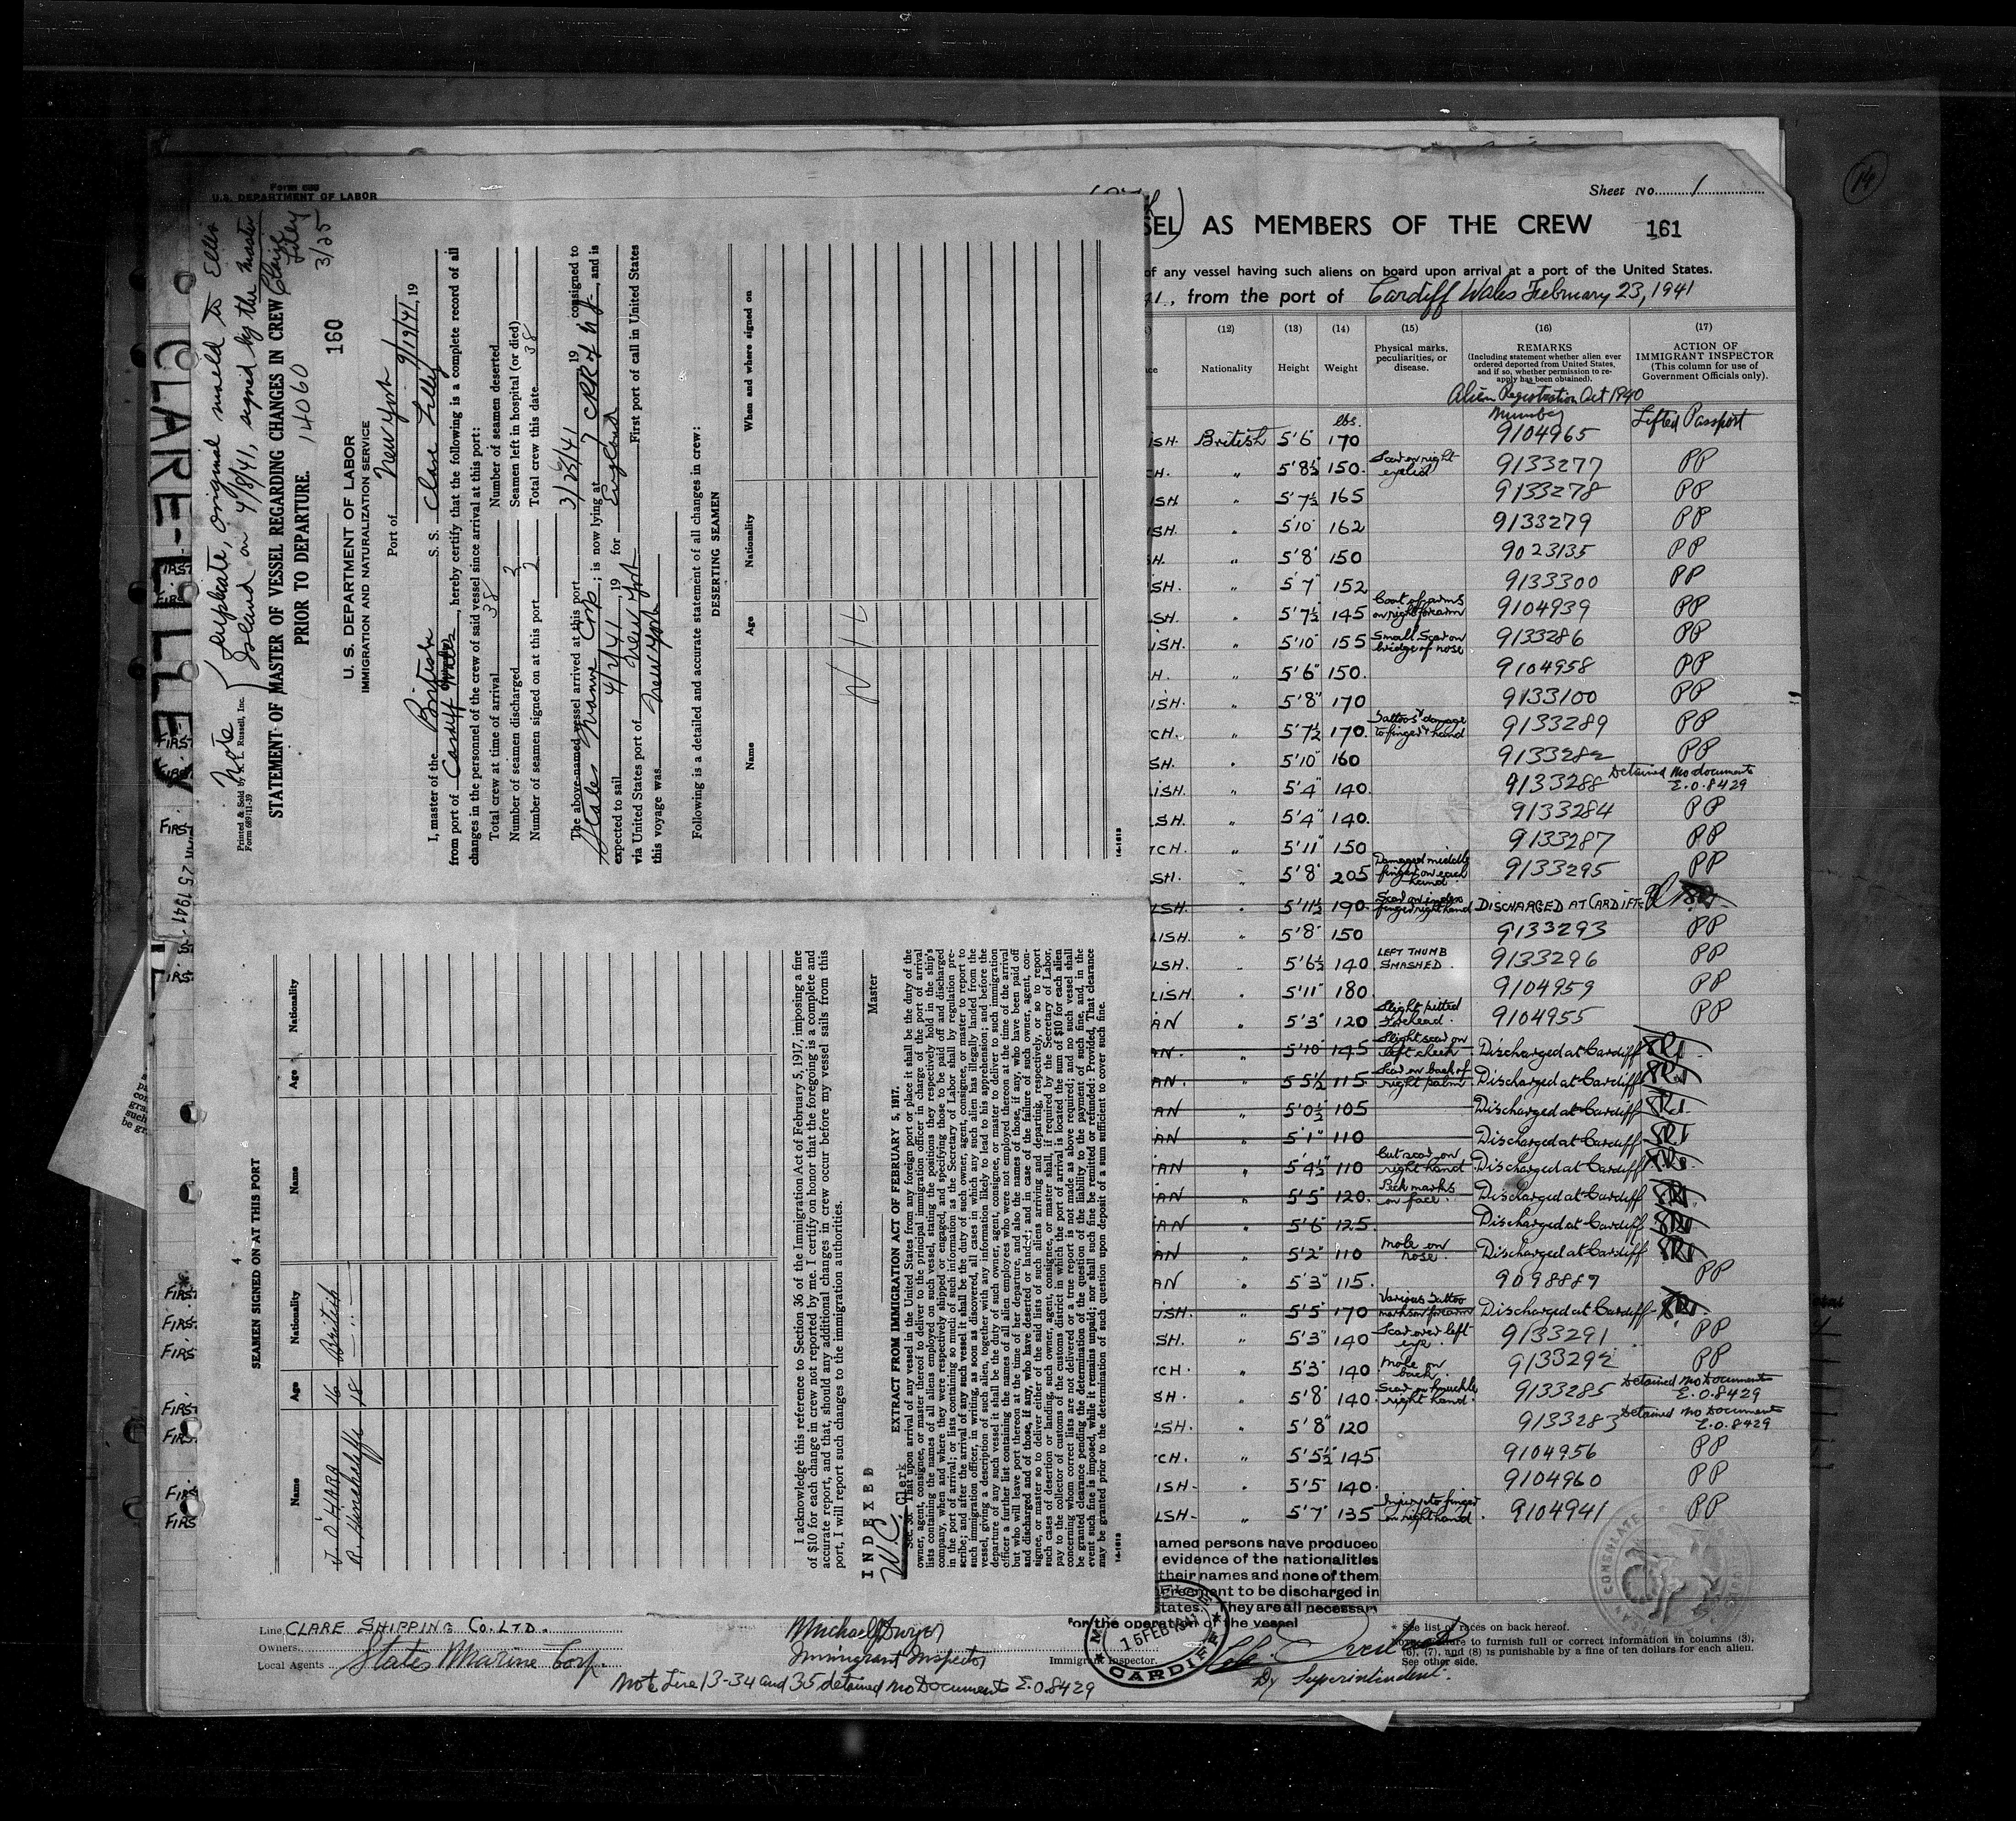 Form 689
U.S. DEPARTMENT OF LABOR
CLARE-LILLEY
Note
Duplicate, original mailed to Ellis
Island on 4/8/41, signed by the Master
Clare Lilley
3/25
Printed & Sold by R. L. Russell, Inc.
Form 689:11-39
STATEMENT OF MASTER OF VESSEL REGARDING CHANGES IN CREW
PRIOR TO DEPARTURE. 14060
160
U. S. DEPARTMENT OF LABOR
IMMIGRATION AND NATURALIZATION SERVICE
Port of New York
I, master of the British S. S. Clare Lilley
from port of Cardiff Wales, hereby certify that the following is a complete record of all
changes in the personnel of the crew of said vessel since arrival at this port:
Total crew at time of arrival 38 Number of seamen deserted
Number of seamen discharged Seamen left in hospital (or died)
Number of seamen signed on at this port 2 Total crew this date 38
The above-named vessel arrived at this port 3/25/41, 19 consigned to
States Marine Corp; is now lying at 7 CRR of NJ, and is
expected to sail 4/2/41, 19 for England
via United States port of New York First port of call in United States
this voyage was New York
Following is a detailed and accurate statement of all changes in crew:
DESERTING SEAMEN
Name Age Nationality When and where signed on
NIL
16-1613
4
SEAMEN SIGNED ON AT THIS PORT
Name Age Nationality Name Age Nationality
J. O'HARA 16 British
R. Hinchcliffe 18 — " —
I acknowledge this reference to Section 36 of the Immigration Act of February 5, 1917, imposing a fine
of $10 for each change in crew not reported by me. I certify on honor that the foregoing is a complete and
accurate report, and that, should any additional changes in crew occur before my vessel sails from this
port, I will report such changes to the immigration authorities.
Master
INDEXED
W.C. Clerk
EXTRACT FROM IMMIGRATION ACT OF FEBRUARY 5, 1917.
Sec. 36. That upon arrival of any vessel in the United States from any foreign port or place it shall be the duty of the
owner, agent, consignee, or master thereof to deliver to the principal immigration officer in charge of the port of arrival
lists containing the names of all aliens employed on such vessel, stating the positions they respectively hold in the ship's
company, when and where they were respectively shipped or engaged, and specifying those to be paid off and discharged
in the port of arrival; or lists containing so much of such information as the Secretary of Labor shall by regulation pre-
scribe; and after the arrival of any such vessel it shall be the duty of such owner, agent, consignee, or master to report to
such immigration officer, in writing, as soon as discovered, all cases in which any such alien has illegally landed from the
vessel, giving a description of such alien, together with any information likely to lead to his apprehension; and before the
departure of any such vessel it shall be the duty of such owner, agent, consignee, or master to deliver to such immigration
officer a further list containing the names of all alien employees who were not employed thereon at the time of the arrival
but who will leave port thereon at the time of her departure, and also the names of those, if any, who have been paid off
and discharged and of those, if any, who have deserted or landed; and in case of the failure of such owner, agent, con-
signee, or master so to deliver either of the said lists of such aliens arriving and departing, respectively, or so to report
such cases of desertion or landing, such owner, agent, consignee, or master shall, if required by the Secretary of Labor,
pay to the collector of customs of the customs district in which the port of arrival is located the sum of $10 for each alien
concerning whom correct lists are not delivered or a true report is not made as above required; and no such vessel shall
be granted clearance pending the determination of the question of the liability to the payment of such fine, and, in the
event such fine is imposed, while it remains unpaid; nor shall such fine be remitted or refunded: Provided, That clearance
may be granted prior to the determination of such question upon deposit of a sum sufficient to cover such fine.
16-1613
14
Sheet No. 1
SEL) AS MEMBERS OF THE CREW 161
of any vessel having such aliens on board upon arrival at a port of the United States.
41, from the port of Cardiff Wales February 23, 1941
(12) (13) (14) (15) (16) (17)
Nationality Height Weight Physical marks, peculiarities, or disease. REMARKS (Including statement whether alien ever ordered deported from United States, and if so, whether permission to re-apply has been obtained). ACTION OF IMMIGRANT INSPECTOR (This column for use of Government Officials only).
Alien Registration Oct 1940
Number Lifted Passport
lbs.
ISH. British 5'6 170 9104965
CH. " 5'8½ 150. Scar on right eyelid 9133277 PP
ISH " 5'7½ 165 9133278 PP
ISH. " 5'10" 162 9133279 PP
H. " 5'8" 150 9023135 PP
SH. " 5'7" 152 9133300 PP
SH. " 5'7½ 145 Coat of arms on right forearm 9104939 PP
ISH. " 5'10" 155 Small Scar on bridge of nose 9133286 PP
H. " 5'6" 150. 9104958 PP
ISH. " 5'8" 170 9133100 PP
CH. " 5'7½ 170. Tattoos & damage to finger hand 9133289 PP
SH. " 5'10" 160 9133282 PP
ISH. " 5'4" 140. 9133288 Detained No documents E.O. 8429
SH. " 5'4" 140. 9133284 PP
TCH. " 5'11" 150 9133287 PP
SH. " 5'8" 205 Damaged middle finger on each hand 9133295 PP
LSH. " 5'11½ 190. Scar on index finger right hand DISCHARGED AT CARDIFF
LISH. " 5'8" 150 9133293 PP
LSH. " 5'6½ 140 LEFT THUMB SMASHED. 9133296 PP
LISH. " 5'11" 180. 9104959 PP
AN " 5'3" 120 Slight pitted forehead. 9104955 PP
AN. " 5'10" 145 Slight scar on left cheek Discharged at Cardiff
AN. " 5'5½ 115 Scar on back of right palm Discharged at Cardiff
AN " 5'0½ 105 Discharged at Cardiff
AN " 5'1" 110 Discharged at Cardiff
AN " 5'4½ 110 Cut scar on right hand Discharged at Cardiff
AN " 5'5" 120. Pock marks on face. Discharged at Cardiff
AN " 5'6" 125. Discharged at Cardiff
AN " 5'2" 110 Mole on nose. Discharged at Cardiff
AN " 5'3" 115. 9098889 PP
ISH. " 5'5" 170 Various Tattoo marks on forearm Discharged at Cardiff
SH. " 5'3" 140 Scar over left eye 9133291 PP
CH. " 5'3" 140 Mole on back. 9133292 PP
SH. " 5'8" 140. Scar on knuckle right hand. 9133285 Detained No Documents E.O. 8429
LSH. " 5'8" 120 9133283 Detained No Documents E.O. 8429
CH. " 5'5½ 145. 9104956 PP
ISH- " 5'5" 140. 9104960 PP
LSH- " 5'7" 135 Injury to finger on right hand. 9104941 PP
named persons have produced
evidence of the nationalities
their names and none of them
agreement to be discharged in
States. They are all necessary
for the operation of the vessel
15 FEB 1941
CARDIFF
Line, CLARE SHIPPING Co. LTD.
Owners
Local Agents States Marine Corp.
Michael J Dwyer
Immigrant Inspector
Immigrant Inspector.
Dy Superintendent.
Note Line 13-34 and 35 detained No Documents E.O. 8429
* See list of races on back hereof.
Note.—Failure to furnish full or correct information in columns (3),
(6), (7), and (8) is punishable by a fine of ten dollars for each alien.
See other side.